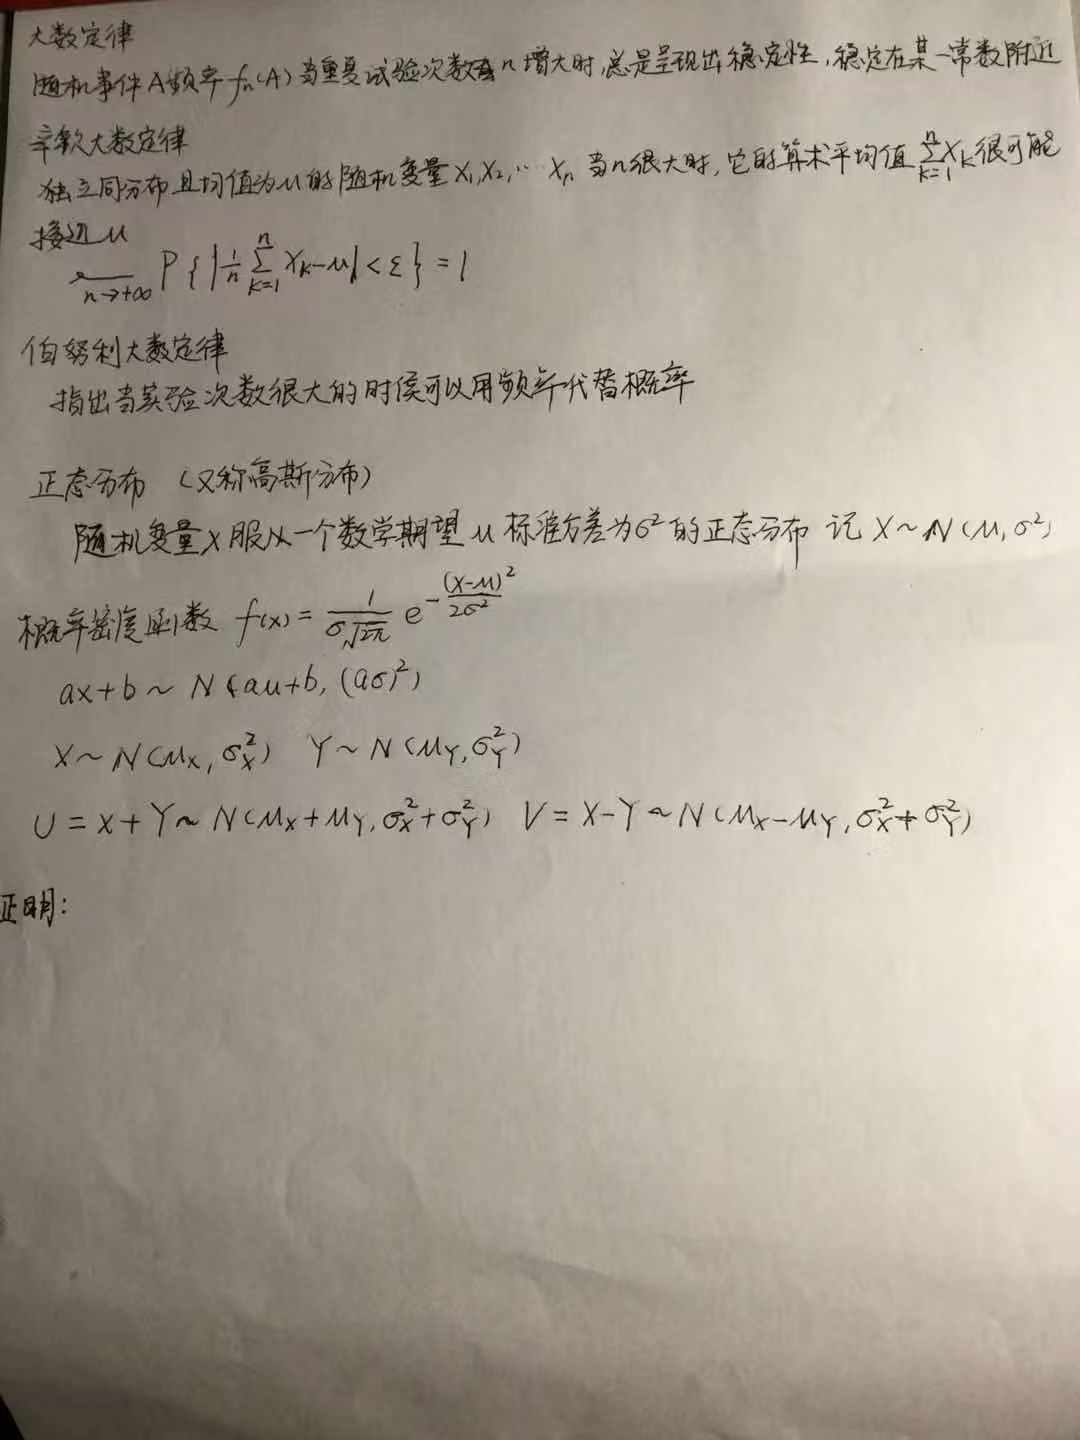 大数定律
随机事件A频率 fn(A) 当重复试验次数 n 增大时,总是呈现出稳定性,稳定在某一常数附近
辛钦大数定律
独立同分布且均值为μ的随机变量 X₁,X₂,… Xn 当n很大时,它的算术平均值 ∑_{k=1}^{n} X_k 很可能
接近μ
n→+∞ P{|1/n ∑_{k=1}^{n} X_k-μ|<ε}=1
伯努利大数定律
指出当实验次数很大的时候可以用频率代替概率
正态分布 (又称高斯分布)
随机变量X服从一个数学期望μ标准方差为σ²的正态分布 记 X~N(μ,σ²)
概率密度函数 f(x)= 1/(σ√2π) e^{-(x-μ)²/2σ²}
ax+b~N(aμ+b,(aσ)²)
X~N(μ_X,σ_X²) Y~N(μ_Y,σ_Y²)
U=X+Y~N(μ_X+μ_Y,σ_X²+σ_Y²) V=X-Y~N(μ_X-μ_Y,σ_X²+σ_Y²)
正明: